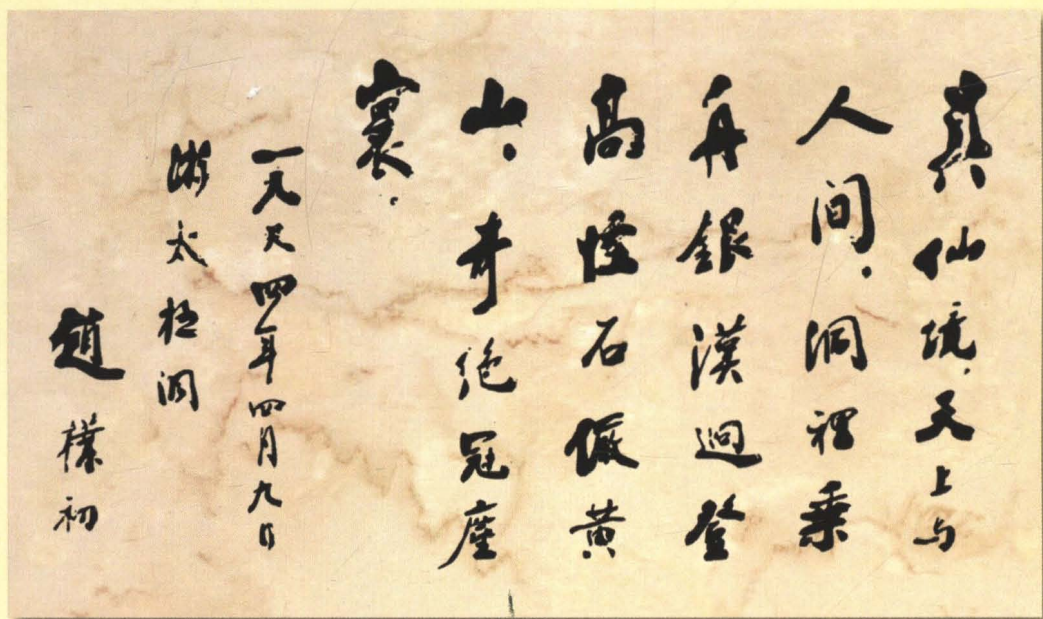 真仙境，天上与
人间。洞裡乘
舟銀漢迥登
高怪石儼黄
山。奇绝冠塵
寰。
一九八四年四月九日
游太極洞
趙樸初